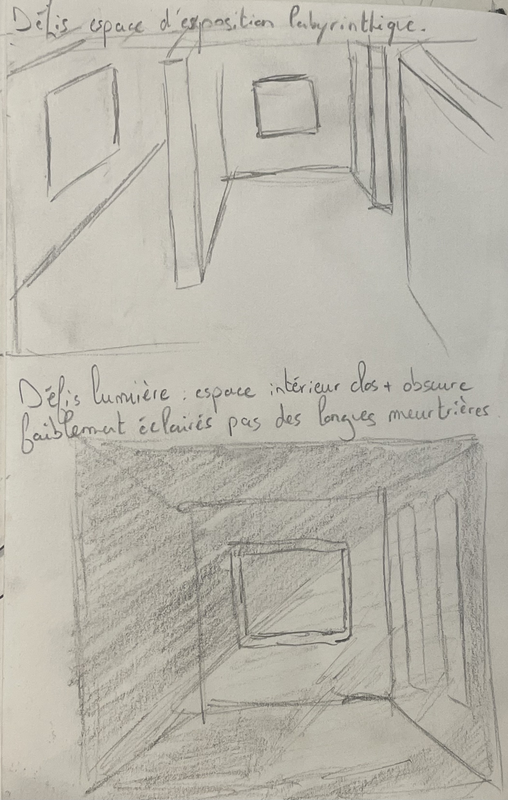 Défis espace d'exposition labyrinthique.
Défis lumière : espace intérieur clos + obscure
faiblement éclairés pas des longues meurtrières